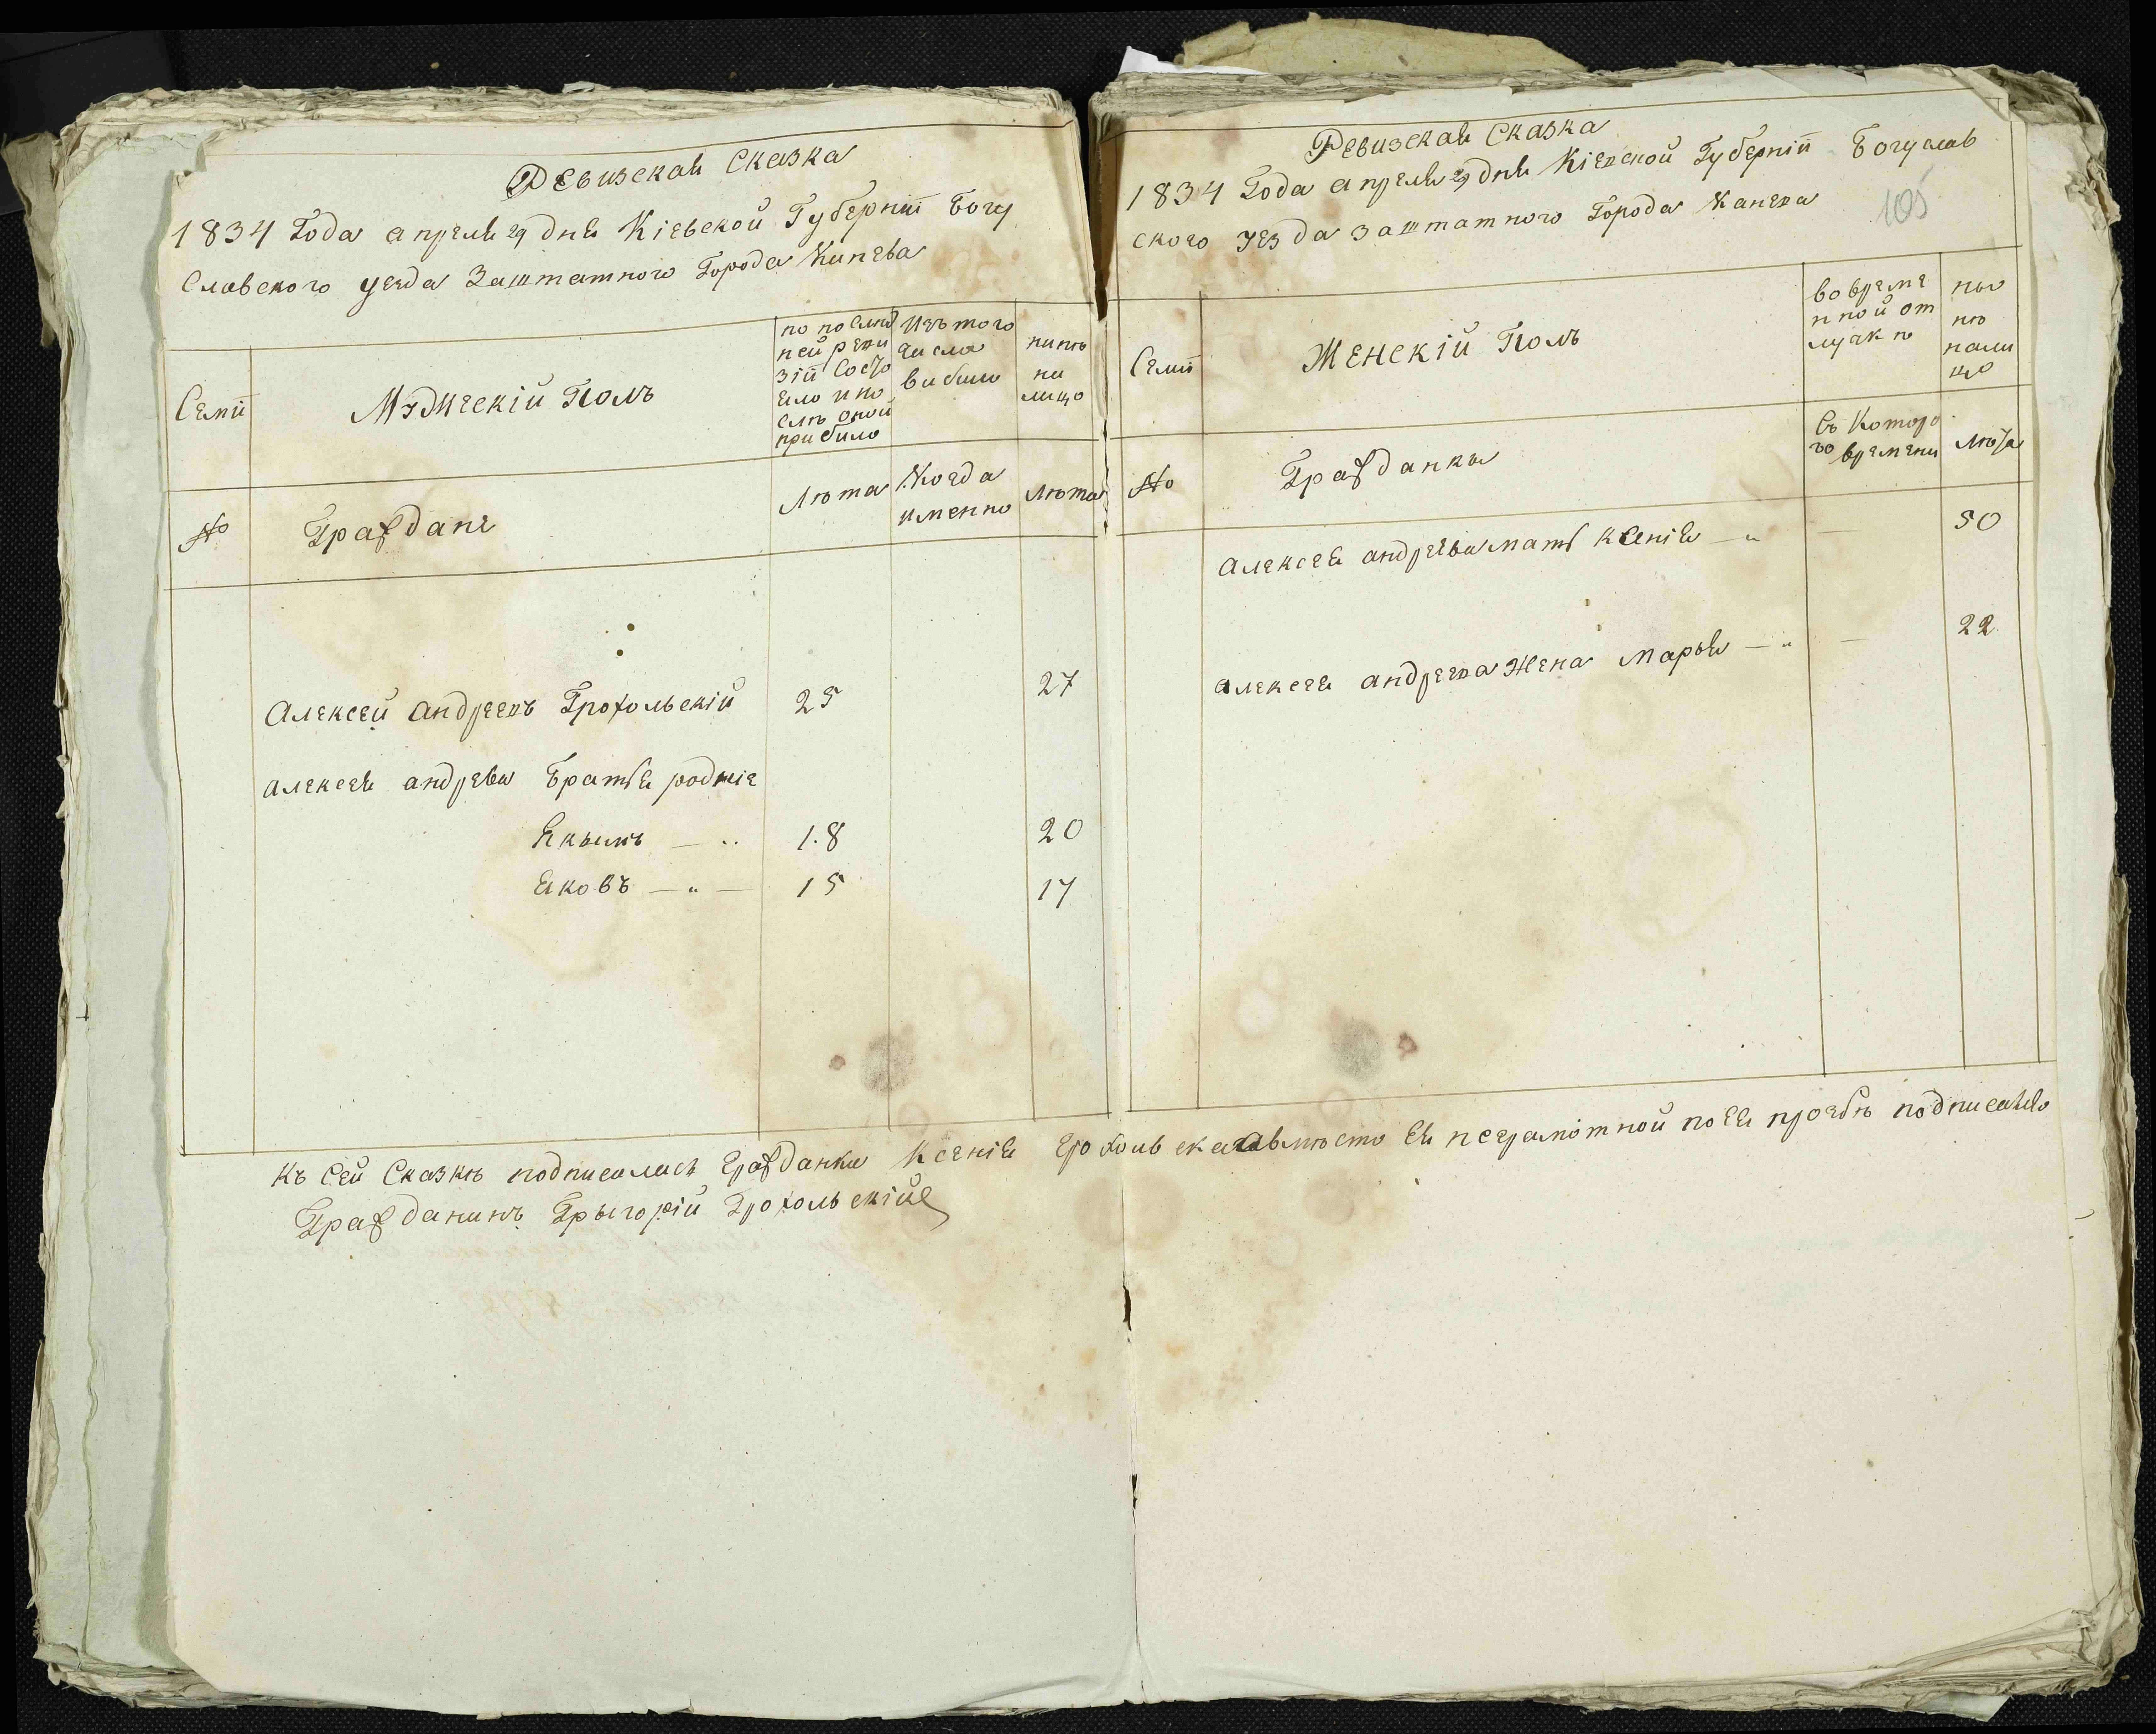 Ревизская Сказка
1834 Года апреля 29 дня Кіевской Губерніи Богу
Славского уезда Заштатного Города Канева
Семіи
Мужческій Полъ
по послед
ней реви
зіи Состо
яло и по
слѣ оной
прибило
Изъ того
числа
выбило
нинѣ
на
лицо
№
Граждане
Лѣта
Когда
именно
Лѣта
Алексей Андреевъ Грохольскій 25 27
Алексея андреева Братья родніе
Якымъ — 18 20
Яковъ — 15 17
Ревизская Сказка
1834 Года апреля 29 дня Кіевской Губерніи Богуслав
ского уезда заштатного Города Канева
105
Семіи
Женскій Полъ
во време
нной от
лучкѣ
ны
нѣ
нали
цо
№
Гражданки
Съ Которо
го времени
Лѣта
Алексея андреева мать Ксенія — — 50
Алексея андреева Жена Марья — — 22
Къ Сей Сказкѣ подписалась гражданка Ксенія Грохольская а вмѣсто ея неграмотной по ея прозбѣ подписался
Гражданинъ Грыгорій Грохольскій